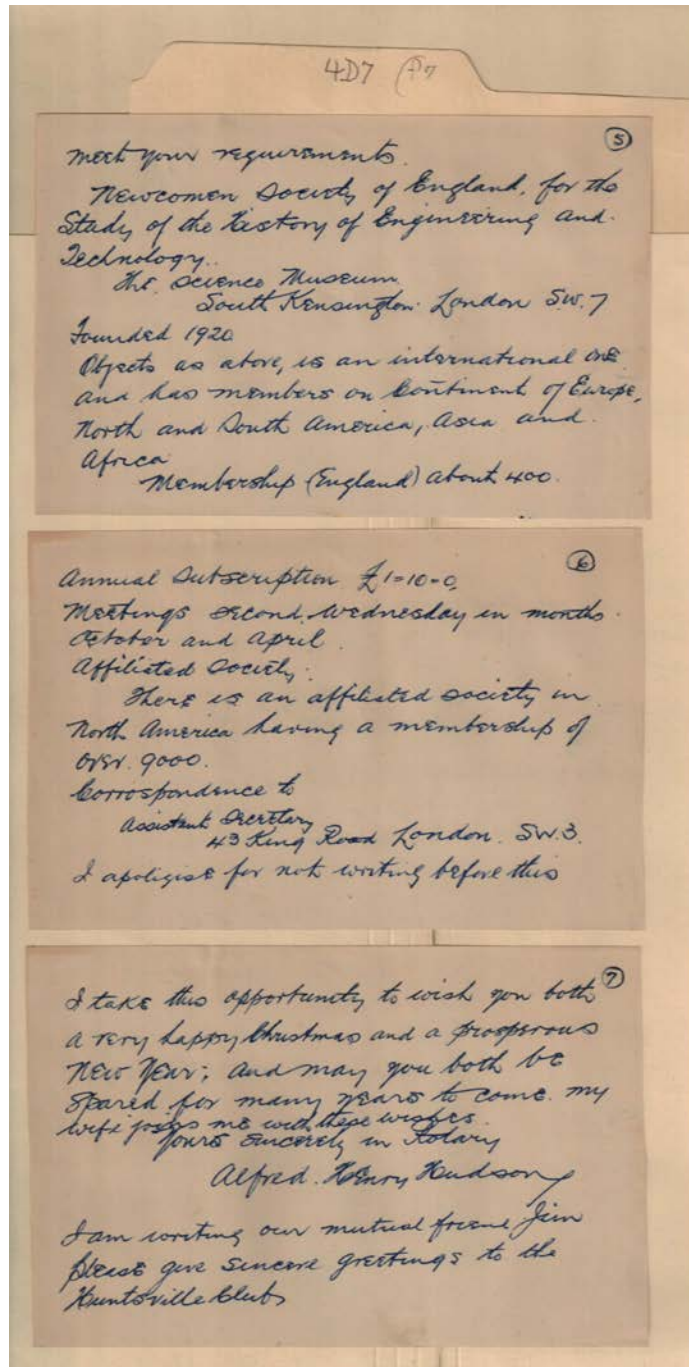 4D7 (P7
5
meet your requirements.
Newcomen Society of England, for the
Study of the History of Engineering and
Technology.
The Science Museum
South Kensington. London S.W.7
Founded 1920
Objects as above, is an international one
and has members on Continent of Europe,
North and South America, Asia and
Africa
Membership (England) about 400.
6
Annual Subscription £1-10-0.
Meetings second Wednesday in months
October and April.
Affiliated Society.
There is an affiliated society in
North America having a membership of
over 9000.
Corrospondence to
Assistant Secretary
43 King Road London. S.W.3.
I apoligise for not writing before this
7
I take this opportunity to wish you both
a very happy Christmas and a prosperous
New Year; and may you both be
spared for many years to come. my
wife joins me with these wishes.
yours sincerely in Rotary
Alfred. Henry Hudson
I am writing our mutual friend Jim
please give sincere greetings to the
Huntsville Clubs